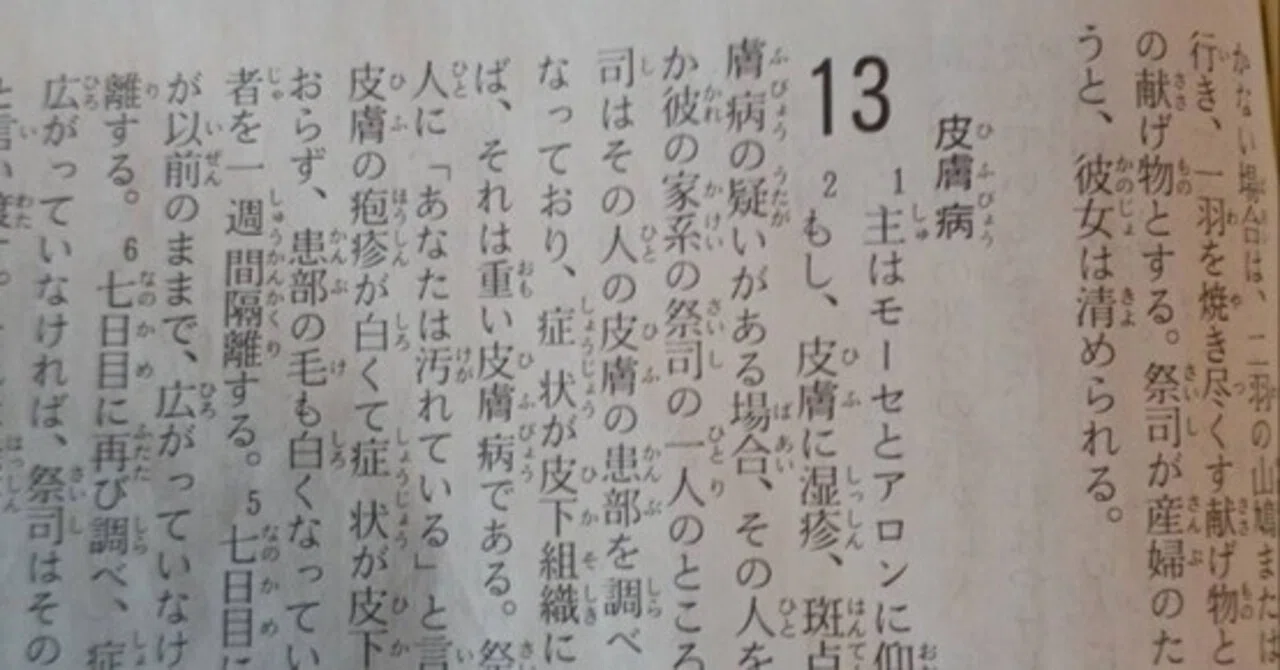 かない場合は、二羽の山鳩または
行き、一羽を焼き尽くす献げ物と
の献げ物とする。祭司が産婦のた
うと、彼女は清められる。
皮膚病
13
1主はモーセとアロンに仰
2もし、皮膚に湿疹、斑点
膚病の疑いがある場合、その人を
か彼の家系の祭司の一人のところ
司はその人の皮膚の患部を調べ
なっており、症状が皮下組織に
ば、それは重い皮膚病である。祭
人に「あなたは汚れている」と言
皮膚の疱疹が白くて症状が皮下
おらず、患部の毛も白くなってい
者を一週間隔離する。5七日目に
が以前のままで、広がっていなけ
離する。6七日目に再び調べ、症
広がっていなければ、祭司はその
と言い渡す。